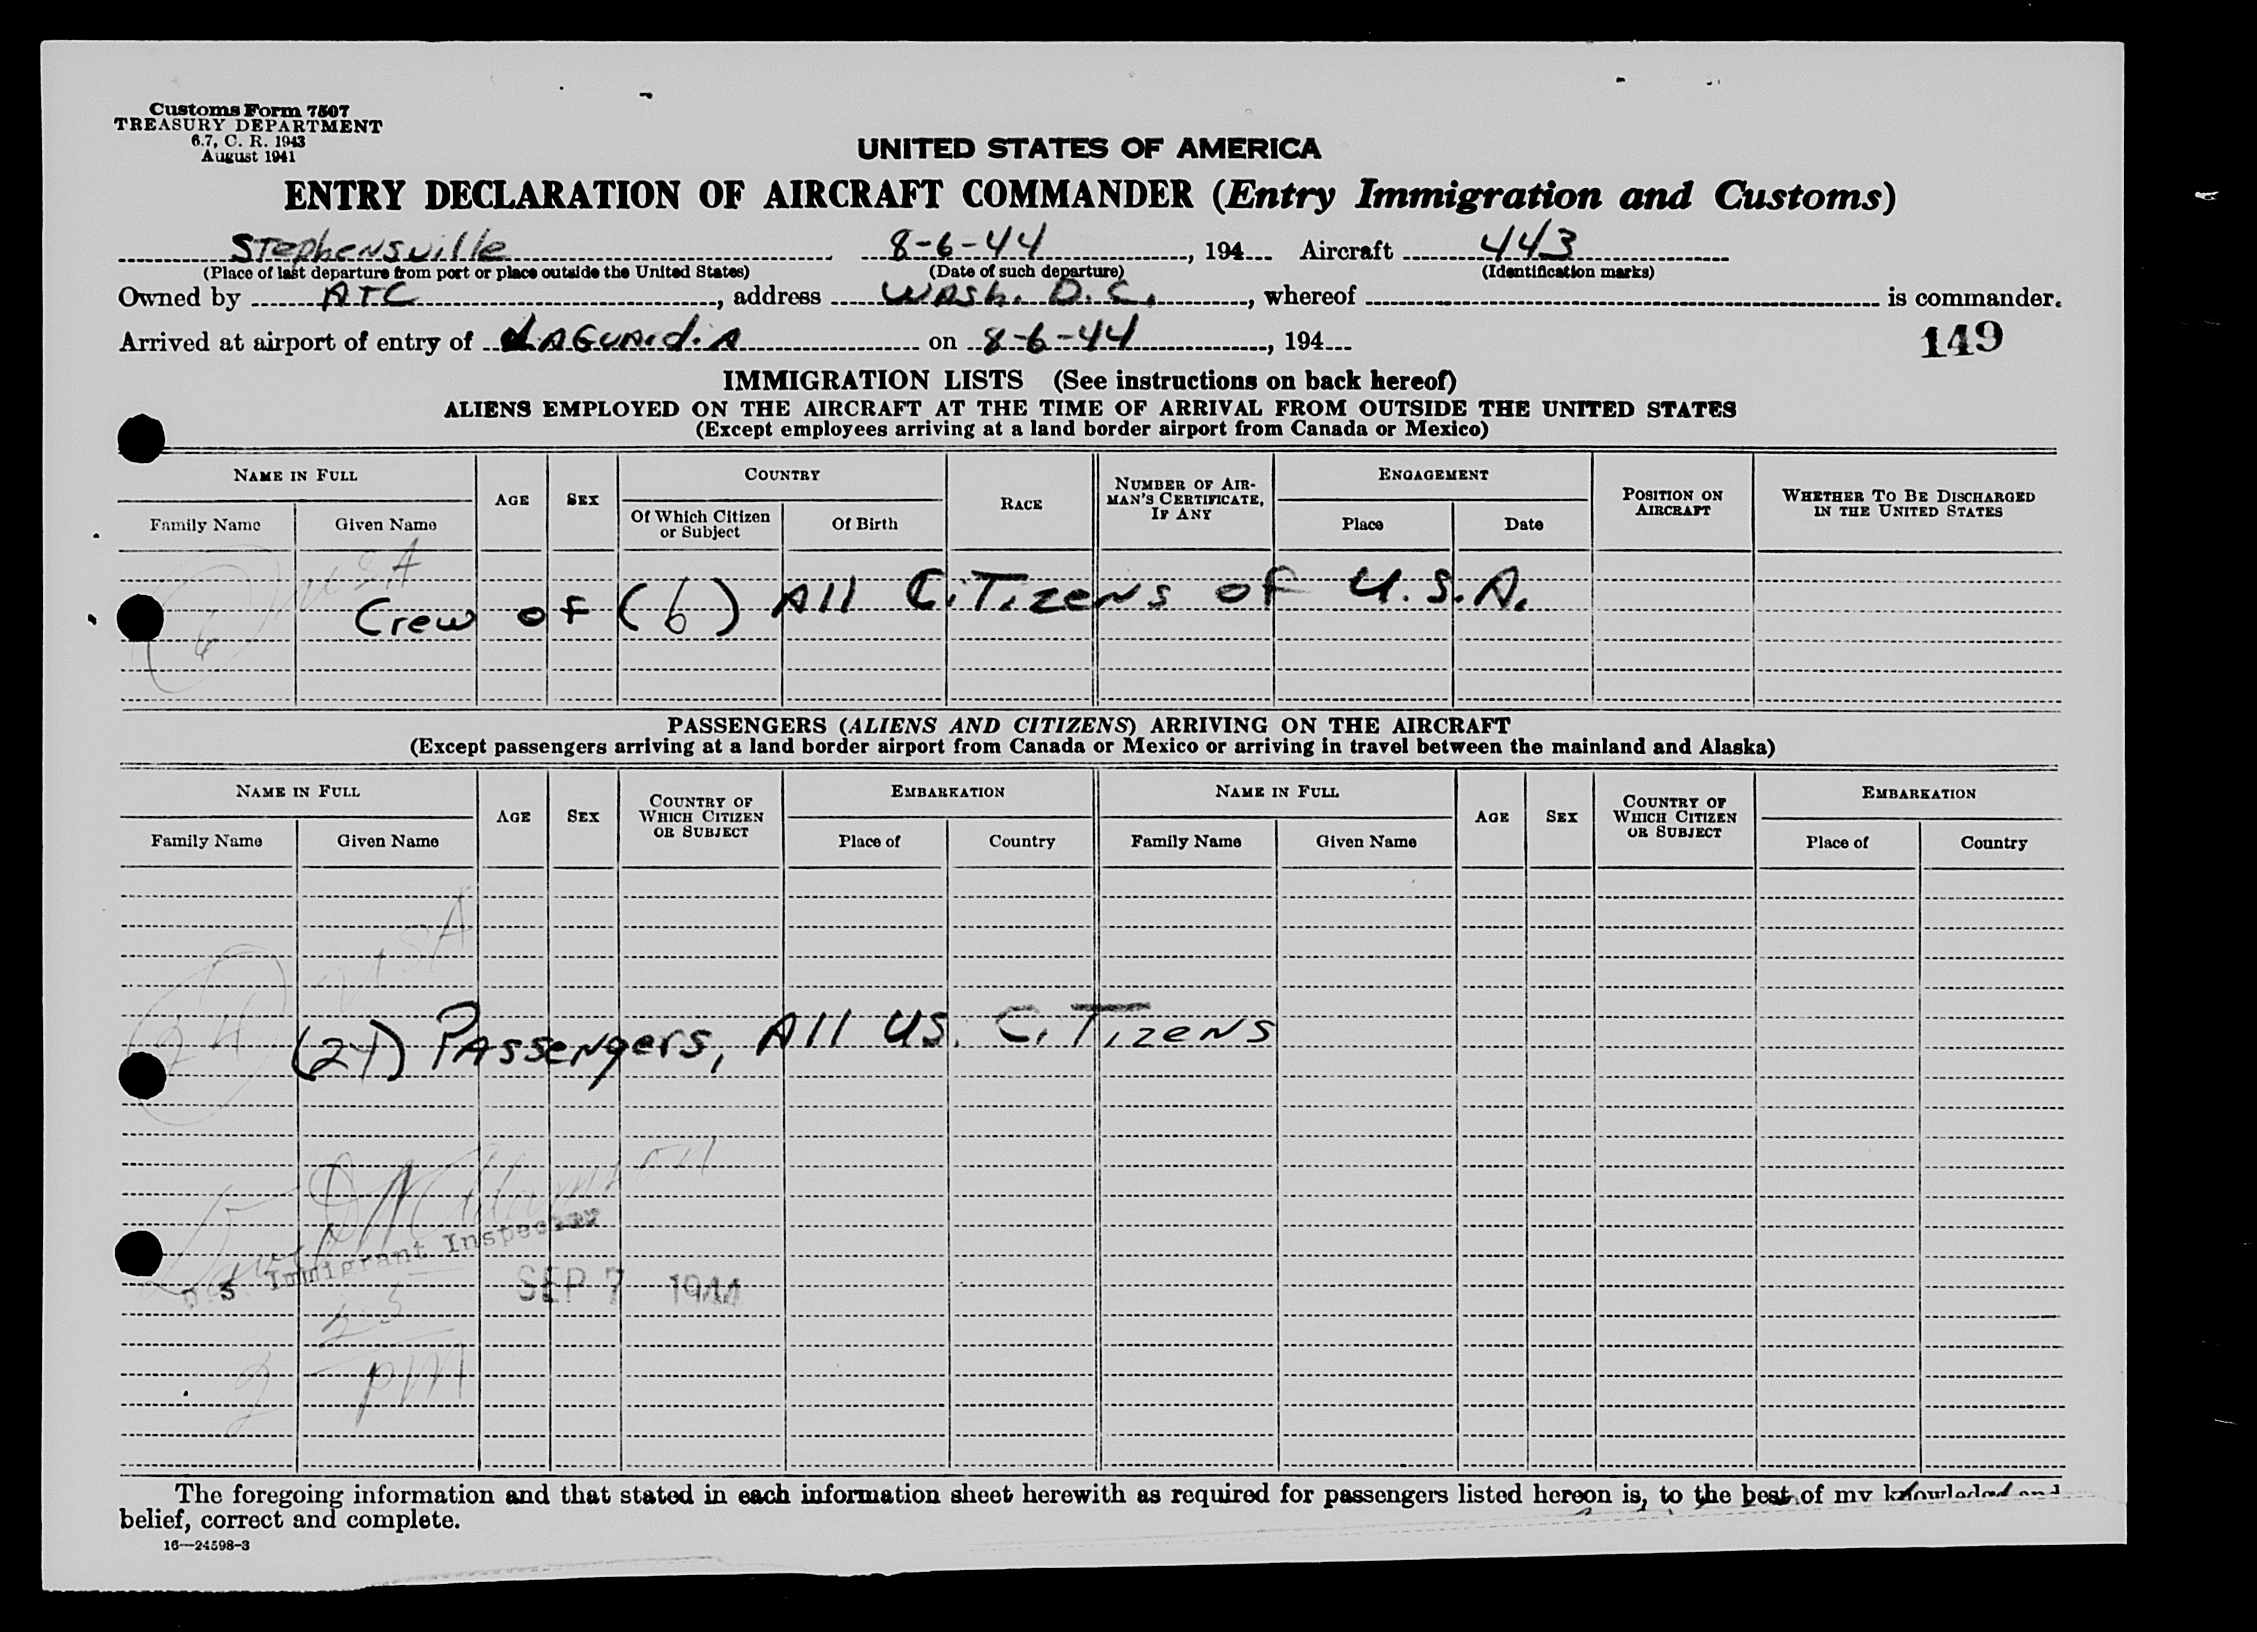 Customs Form 7507
TREASURY DEPARTMENT
6.7, C. R. 1943
August 1941
UNITED STATES OF AMERICA
ENTRY DECLARATION OF AIRCRAFT COMMANDER (Entry Immigration and Customs)
Stephensville 8-6-44, 194 Aircraft 443
(Place of last departure from port or place outside the United States) (Date of such departure) (Identification marks)
Owned by ATC, address Wash. D.C., whereof is commander.
Arrived at airport of entry of LAGUARdiA on 8-6-44, 194
149
IMMIGRATION LISTS (See instructions on back hereof)
ALIENS EMPLOYED ON THE AIRCRAFT AT THE TIME OF ARRIVAL FROM OUTSIDE THE UNITED STATES
(Except employees arriving at a land border airport from Canada or Mexico)
NAME IN FULL AGE SEX COUNTRY RACE NUMBER OF AIRMAN'S CERTIFICATE, IF ANY ENGAGEMENT POSITION ON AIRCRAFT WHETHER TO BE DISCHARGED IN THE UNITED STATES
Family Name Given Name Of Which Citizen or Subject Of Birth Place Date
6 USA
Crew of (6) All CiTizens of U.S.A.
PASSENGERS (ALIENS AND CITIZENS) ARRIVING ON THE AIRCRAFT
(Except passengers arriving at a land border airport from Canada or Mexico or arriving in travel between the mainland and Alaska)
NAME IN FULL AGE SEX COUNTRY OF WHICH CITIZEN OR SUBJECT EMBARKATION NAME IN FULL AGE SEX COUNTRY OF WHICH CITIZEN OR SUBJECT EMBARKATION
Family Name Given Name Place of Country Family Name Given Name Place of Country
24 USA
(24) PAssengers, All US. CiTizens
Immigrant Inspector
SEP 7 1944
pm
The foregoing information and that stated in each information sheet herewith as required for passengers listed hereon is, to the best of my knowledge and
belief, correct and complete.
16—24598-3